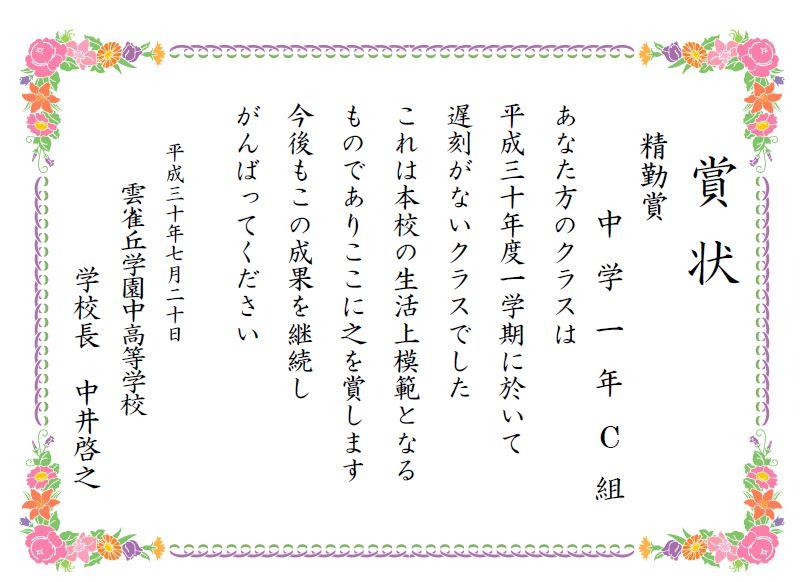 賞状
精勤賞
中学一年C組
あなた方のクラスは
平成三十年度一学期に於いて
遅刻がないクラスでした
これは本校の生活上模範となる
ものでありここに之を賞します
今後もこの成果を継続し
がんばってください
平成三十年七月二十日
雲雀丘学園中高等学校
学校長 中井啓之